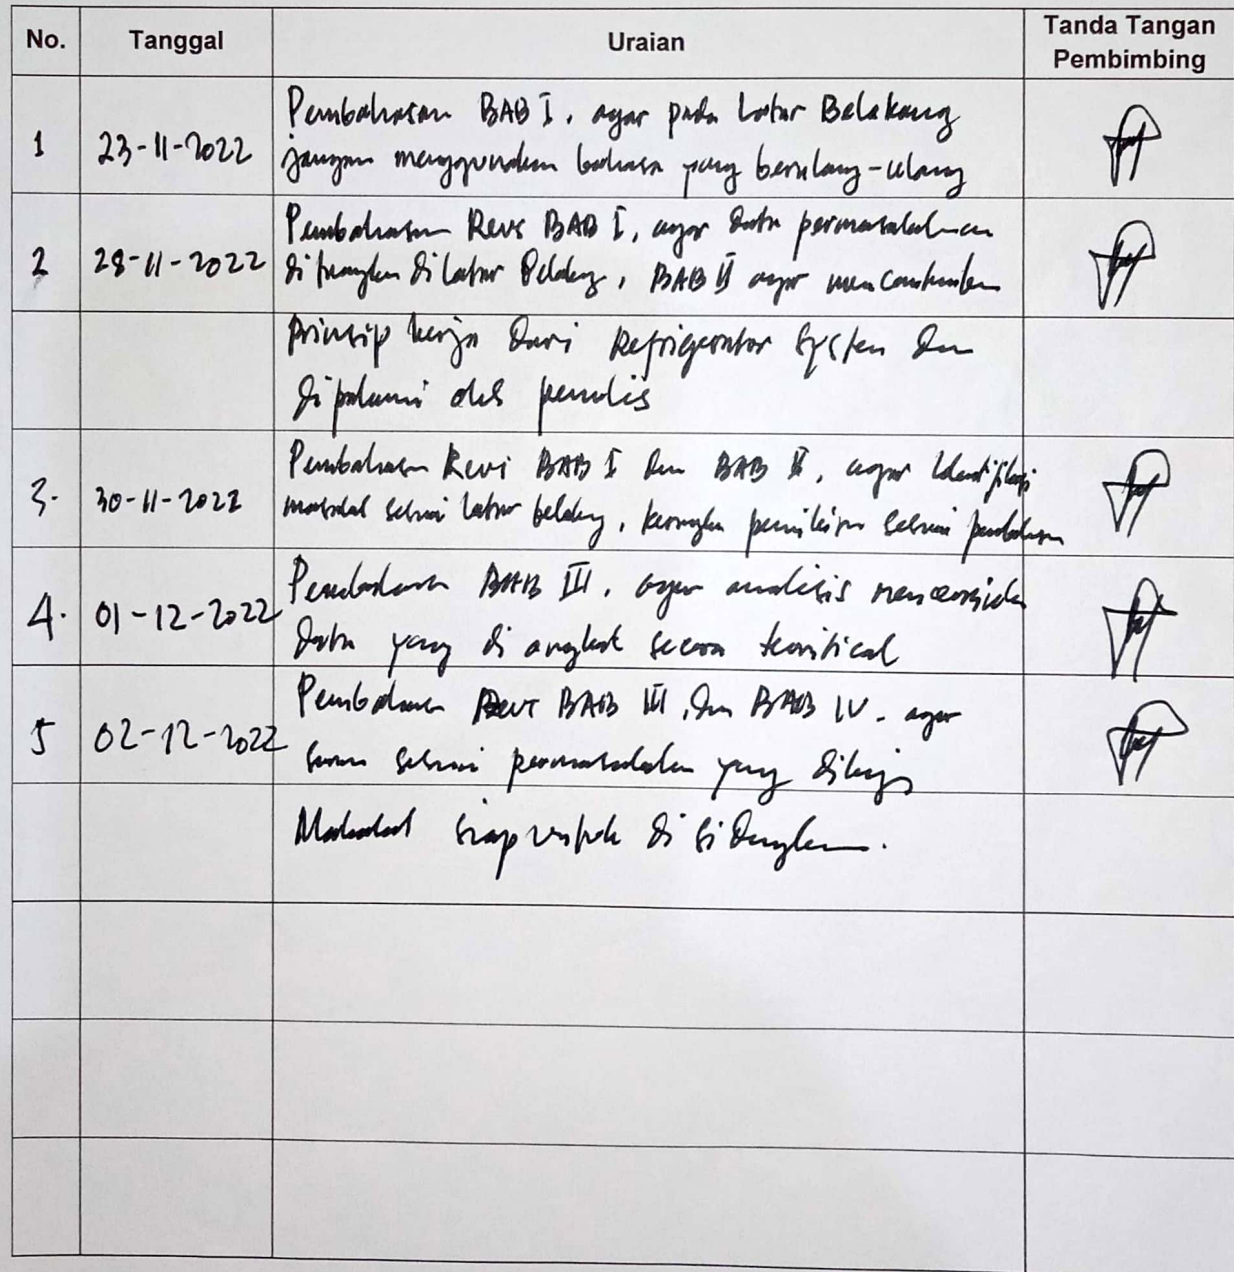 No. Tanggal Uraian Tanda Tangan Pembimbing
1 23-11-2022 Pembahasan BAB I, agar pada Latar Belakang
jangan menggunakan bahasa yang berulang-ulang
2 28-11-2022 Pembahasan Revi BAB I, agar Data permasalahan
di di latar Belakang, BAB II agar mencantumkan
prinsip kerja dari Refrigerator System dan
dipahami oleh penulis
3. 30-11-2022 Pembahasan Revi BAB I dan BAB II, agar Identifikasi
masalah sesuai latar belakang, kerangka pemikiran sesuai pembahasan
4. 01-12-2022 Pembahasan BAB III, agar analisis
data yang di angkat secara teoritical
5 02-12-2022 Pembahasan Revi BAB III, dan BAB IV, agar
saran sesuai permasalahan yang dikaji
Makalah siap untuk di sidangkan.